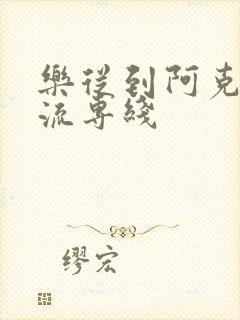 樂從到阿克
流專綫
缪宏